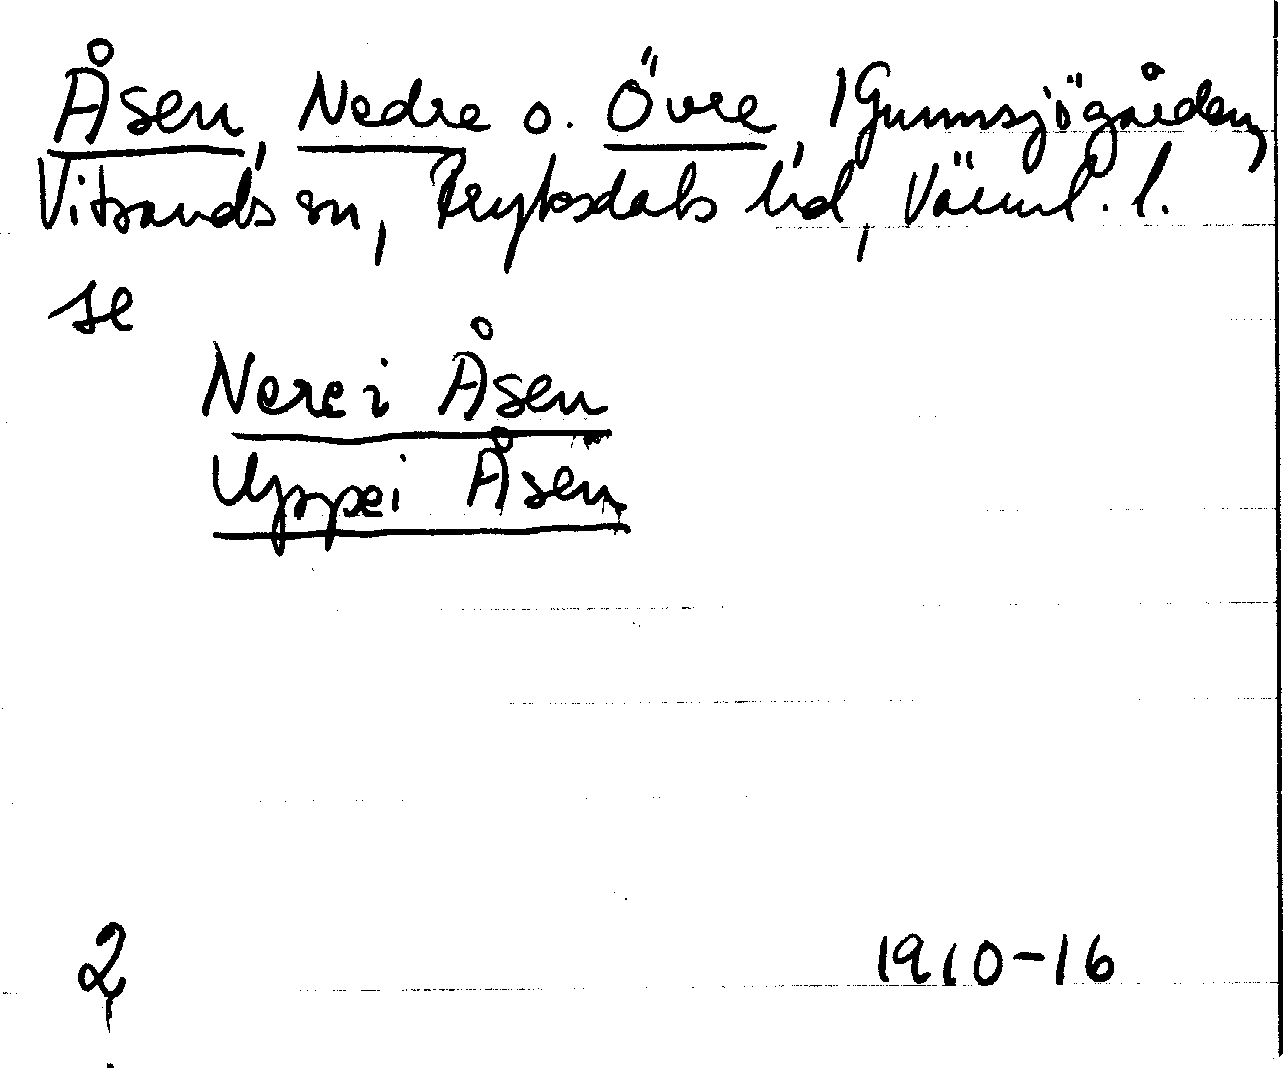 Åsen, Nedre o. Övre, 1 Gunnsjögården,
Vitsands sn, Fryksdals hd, Värml. l.
se
Nere i Åsen
Uppe i Åsen
2
1910-16